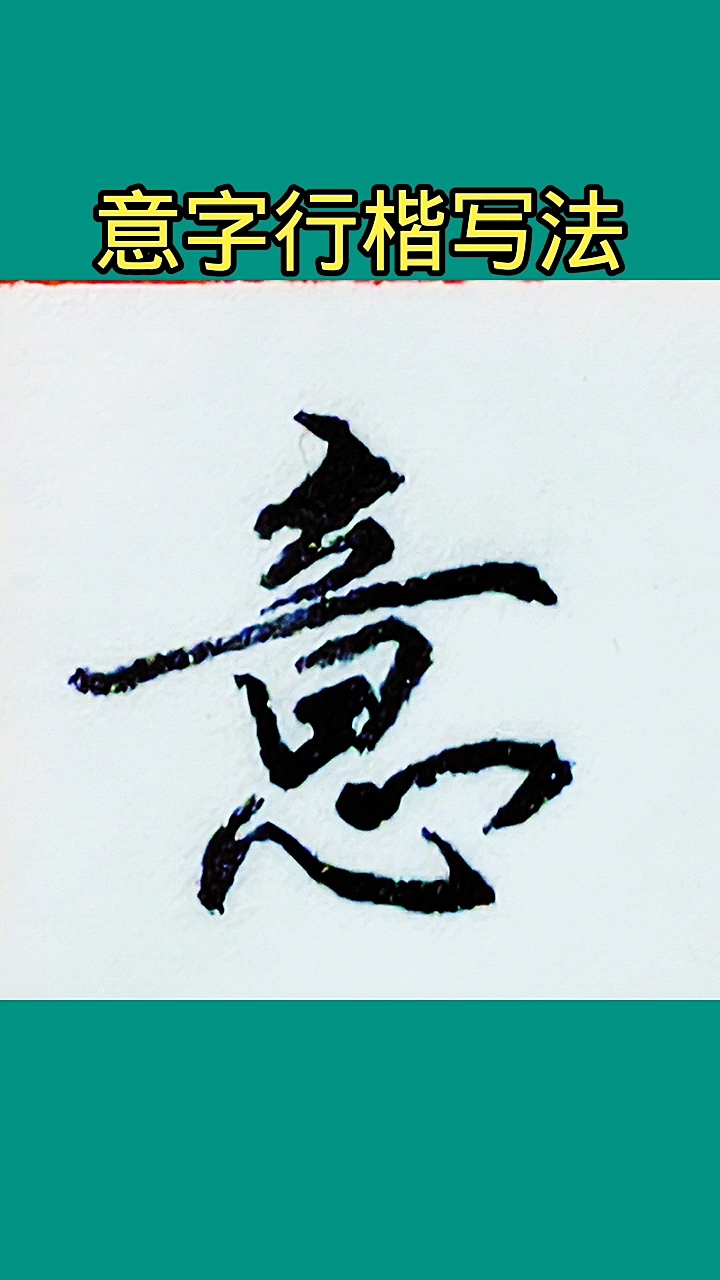 意字行楷写法
意